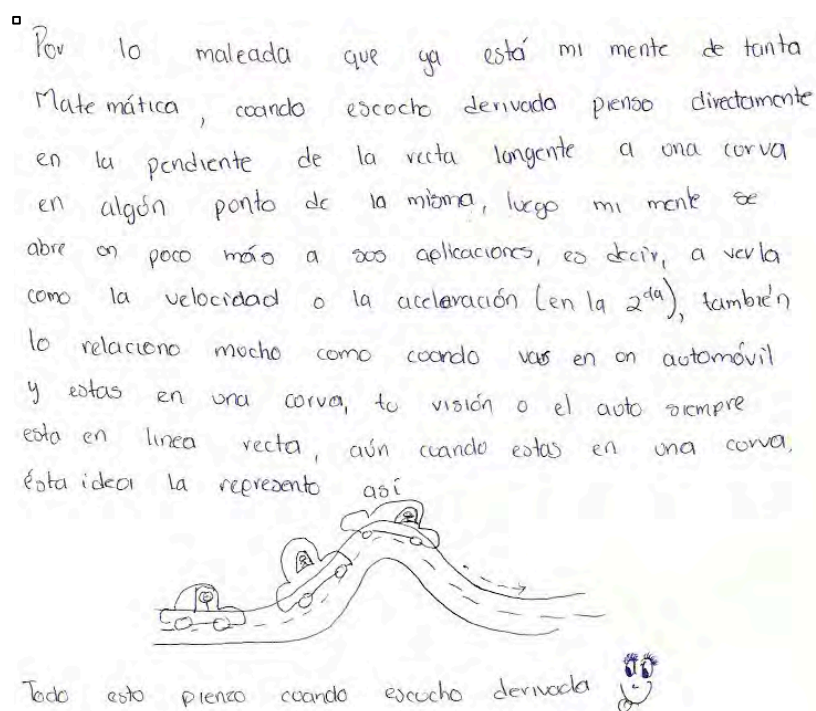 Por lo maleada que ya está mi mente de tanta
Matemática, cuando escucho derivada pienso directamente
en la pendiente de la recta tangente a una curva
en algún punto de la misma, luego mi mente se
abre un poco más a sus aplicaciones, es decir, a verla
como la velocidad o la aceleración (en la 2da), también
lo relaciono mucho como cuando vas en un automóvil
y estas en una curva, tu visión o el auto siempre
esta en linea recta, aún cuando estas en una curva,
ésta idea la represento así
Todo esto pienzo cuando escucho derivada